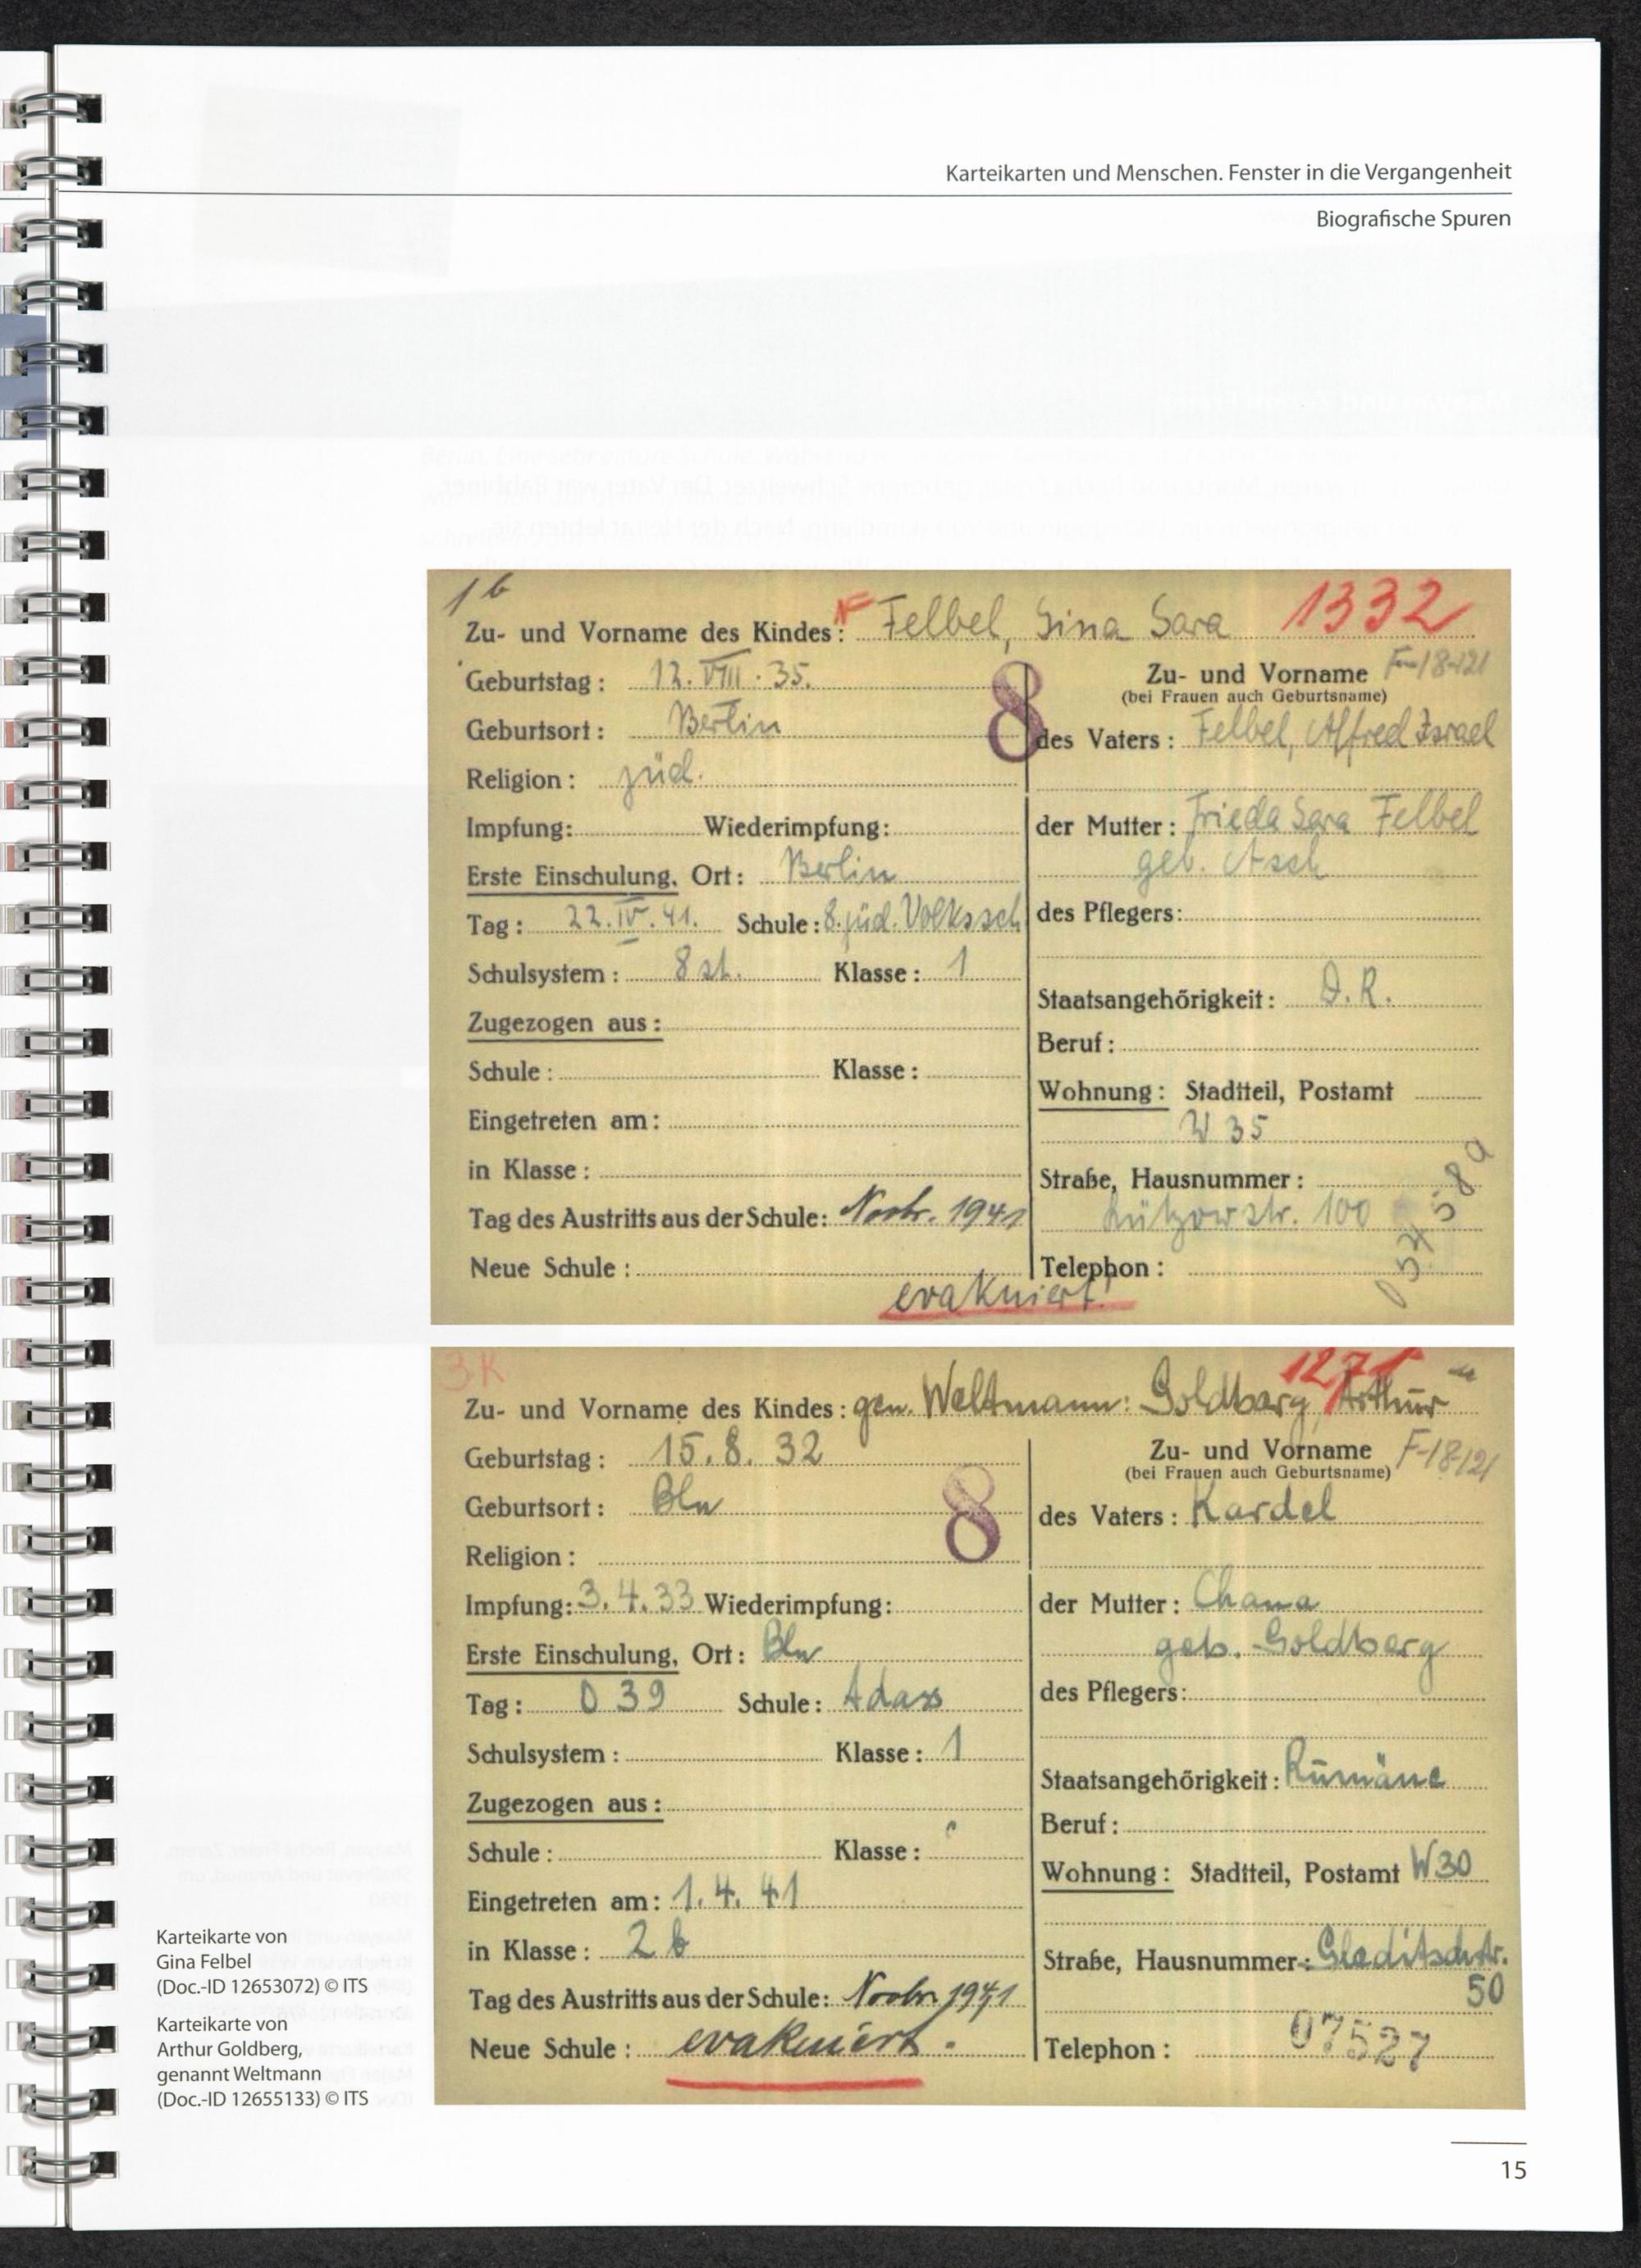 Karteikarten und Menschen. Fenster in die Vergangenheit
Biografische Spuren
1b
Zu- und Vorname des Kindes: Felbel, Gina Sara 1332
Geburtstag: 12. VIII. 35.
Geburtsort: Berlin
Religion: jüd.
Impfung: Wiederimpfung:
Erste Einschulung, Ort: Berlin
Tag: 22. IV. 41. Schule: 8. jüd. Volkssch
Schulsystem: 8 st. Klasse: 1
Zugezogen aus:
Schule: Klasse:
Eingetreten am:
in Klasse:
Tag des Austritts aus der Schule: Novbr. 1941
Neue Schule:
evakuiert!
8
Zu- und Vorname F-18-121
(bei Frauen auch Geburtsname)
des Vaters: Felbel, Alfred Israel
der Mutter: Frieda Sara Felbel
geb. Asch
des Pflegers:
Staatsangehörigkeit: D.R.
Beruf:
Wohnung: Stadtteil, Postamt
W 35
Straße, Hausnummer:
Lützowstr. 100
Telephon:
3K
1271
Zu- und Vorname des Kindes: gen. Weltmann: Goldberg, Arthur
Geburtstag: 15. 8. 32
Geburtsort: Bln
Religion:
Impfung: 3. 4. 33 Wiederimpfung:
Erste Einschulung, Ort: Bln
Tag: O 39 Schule: Adass
Schulsystem: Klasse: 1
Zugezogen aus:
Schule: Klasse:
Eingetreten am: 1. 4. 41
in Klasse: 2 b
Tag des Austritts aus der Schule: Novbr. 1941
Neue Schule: evakuiert.
8
Zu- und Vorname F-18-121
(bei Frauen auch Geburtsname)
des Vaters: Kardel
der Mutter: Chana
geb. Goldberg
des Pflegers:
Staatsangehörigkeit: Rumäne
Beruf:
Wohnung: Stadtteil, Postamt W30
Straße, Hausnummer: Gleditschstr.
50
Telephon: 07527
Karteikarte von
Gina Felbel
(Doc.-ID 12653072) © ITS
Karteikarte von
Arthur Goldberg,
genannt Weltmann
(Doc.-ID 12655133) © ITS
15